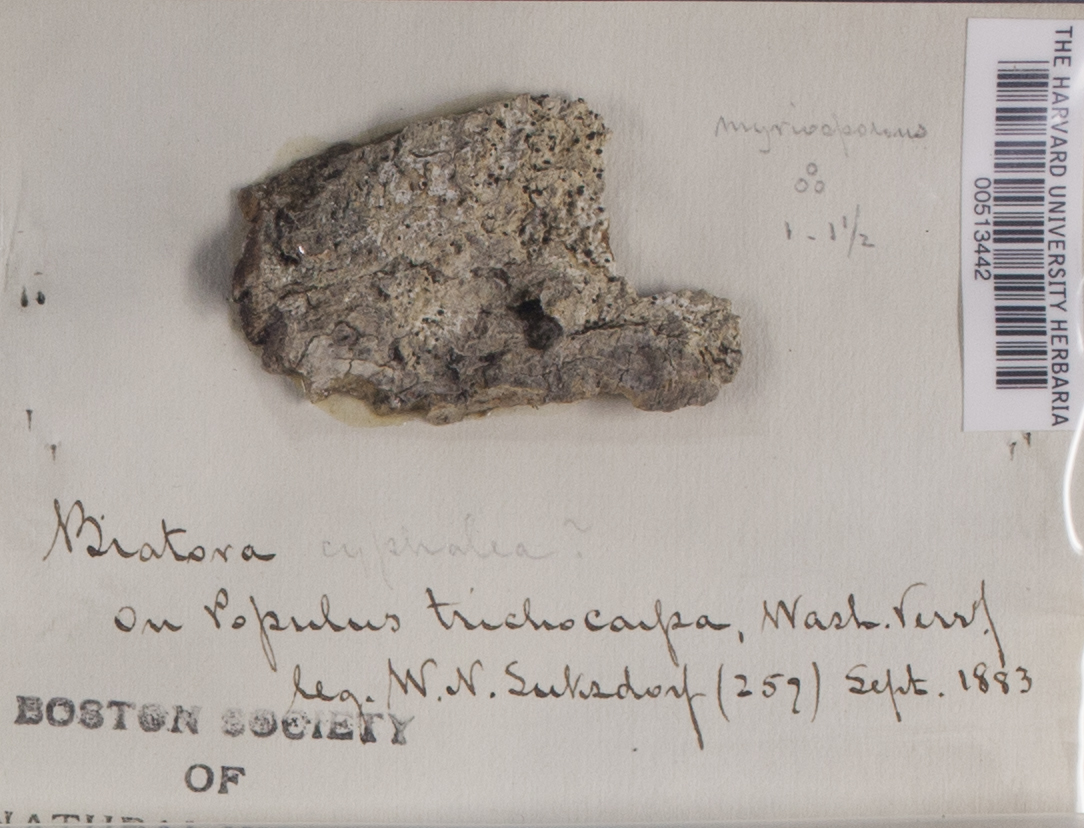 myriosporous
1 - 1 1/2
THE HARVARD UNIVERSITY HERBARIA
00513442
Biatora cyphalea?
on Populus trichocarpa, Wash. Terr.
leg. W.N. Suksdorf (259) Sept. 1883
BOSTON SOCIETY
OF
NATURAL